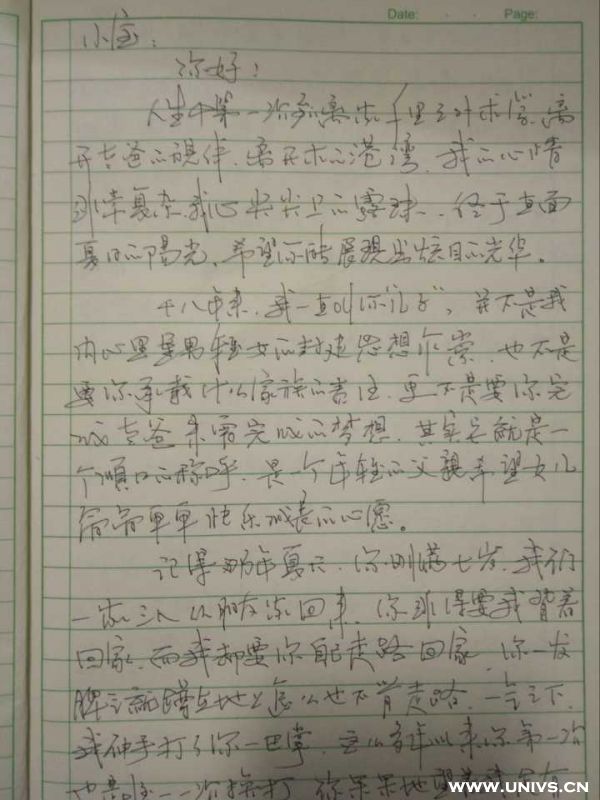 Date: Page:
小宝:
你好!
人生中第一次离家千里之外求学,离
开老爸的视线,离开家的港湾,我的心情
非常复杂,我心尖尖上的露珠,终于直面
夏日的阳光,希望你能展现出炫目的光华。
十八年来,我一直叫你“儿子”,并不是我
内心里重男轻女的封建思想作祟,也不是
要你承载什么家族的责任,更不是要你完
成老爸未曾完成的梦想,其实它就是一
个顺口的称呼,是一个年轻的父親希望女儿
简简单单快乐成长的心愿。
记得那年夏天,你刚满七岁,我们
一家三人从朋友家回来,你非得要我背着
回家,而我却要你自己走路回家,你一发
脾气就蹲在地上怎么也不肯走路,一气之下,
我伸手打了你一巴掌,这么多年以来你第一次
也是唯一一次挨打,你呆呆地望着
WWW.UNIVS.CN